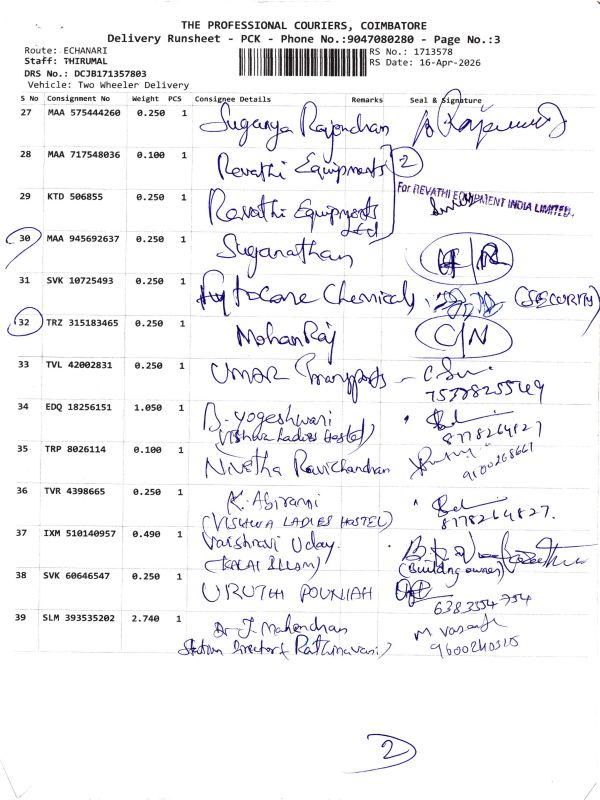 THE PROFESSIONAL COURIERS, COIMBATORE
Delivery Runsheet - PCK - Phone No.:9047080280 - Page No.:3
Route: ECHANARI
RS No.: 1713578
Staff: THIRUMAL
RS Date: 16-Apr-2026
DRS No.: DCJB171357803
Vehicle: Two Wheeler Delivery
S No Consignment No Weight PCS Consignee Details Remarks Seal & Signature
27 MAA 575444260 0.250 1 Suganya Rajendran
28 MAA 717548036 0.100 1 Revathi Equipments 2
For REVATHI EQUIPMENT INDIA LIMITED.
29 KTD 506855 0.250 1 Revathi Equipments
Ltd
30 MAA 945692637 0.250 1 Suganathan
31 SVK 10725493 0.250 1 Chemicals (SECURITY)
32 TRZ 315183465 0.250 1 MohanRaj C/N
33 TVL 42002831 0.250 1 UMAR Transports
34 EDQ 18256151 1.050 1 B. Yogeshwari
(Vishwa Ladies Hostel) 8778264827
35 TRP 8026114 0.100 1 Nivetha Ravichandran
36 TVR 4398665 0.250 1 K. Abirami
(VISHWA LADIES HOSTEL) 8778264827.
37 IXM 510140957 0.490 1 Vaishnavi Uday.
(KALAI ILLAM) (Building owner)
38 SVK 60646547 0.250 1 URUTHI POUNIAH
6383554754
39 SLM 393535202 2.740 1 Dr J. Mahendran
Station Director
2